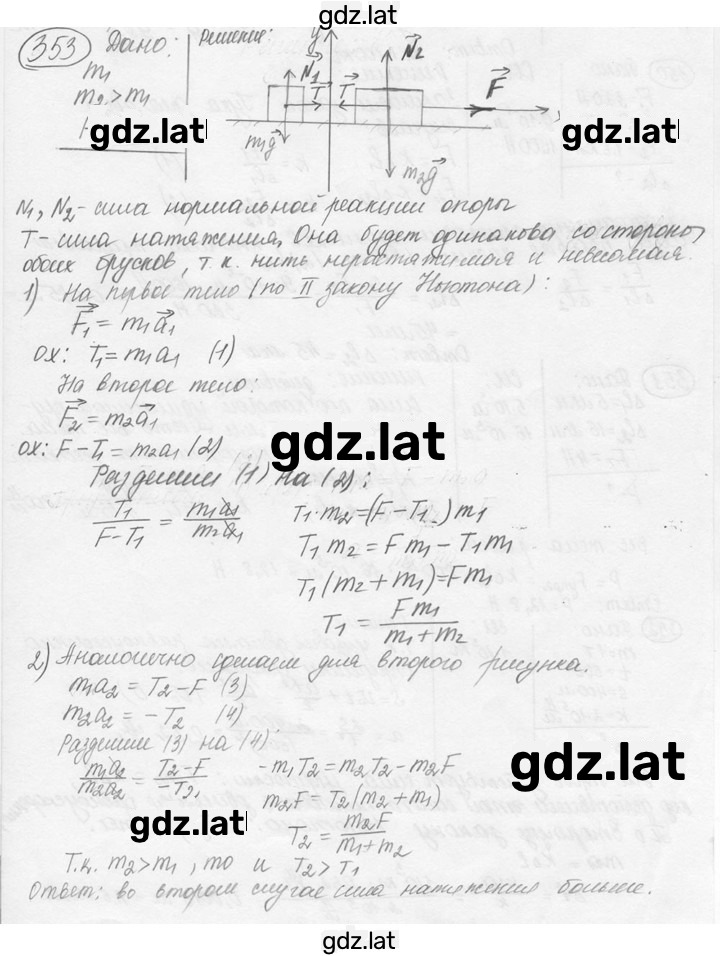 gdz.lat
353 Дано: Решение:
m₁
m₂>m₁
y N₁ N₂ T T F
m₁g m₂g
gdz.lat
gdz.lat
N₁, N₂ - сила нормальной реакции опоры
T - сила натяжения. Она будет одинакова со стороны
обоих брусков, т.к. нить нерастяжимая и невесомая.
1) На первое тело (по II закону Ньютона):
F₁ = m₁a₁
ox: T₁ = m₁a₁ (1)
На второе тело:
F₂ = m₂a₁
ox: F - T₁ = m₂a₁ (2)
gdz.lat
Разделим (1) на (2):
T₁/(F - T₁) = m₁a₁/m₂a₁ T₁·m₂ = (F - T₁)m₁
T₁m₂ = Fm₁ - T₁m₁
T₁(m₂ + m₁) = Fm₁
T₁ = Fm₁/(m₁ + m₂)
2) Аналогично сделаем для второго рисунка.
m₁a₂ = T₂ - F (3)
m₂a₂ = -T₂ (4)
Разделим (3) на (4)
gdz.lat
m₁a₂/m₂a₂ = (T₂ - F)/-T₂ -m₁T₂ = m₂T₂ - m₂F
m₂F = T₂(m₂ + m₁)
T₂ = m₂F/(m₁ + m₂)
Т.к. m₂ > m₁, то и T₂ > T₁
Ответ: во втором случае сила натяжения больше.
gdz.lat